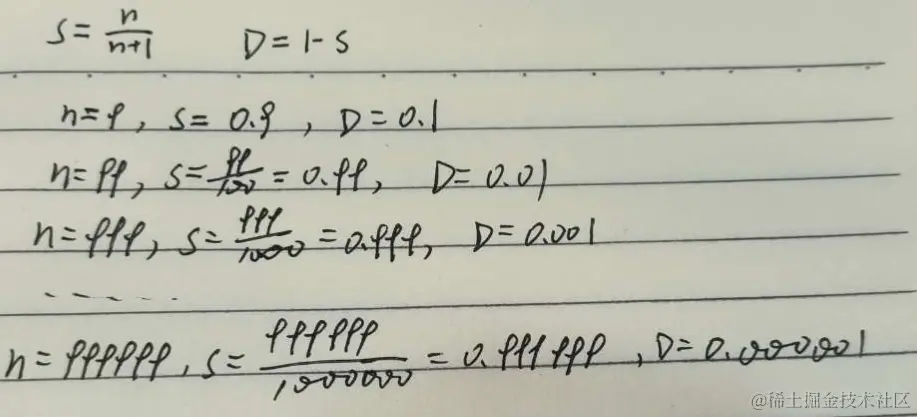 S = n/(n+1) D = 1 - S
n = 9, S = 0.9, D = 0.1
n = 99, S = 99/100 = 0.99, D = 0.01
n = 999, S = 999/1000 = 0.999, D = 0.001
......
n = 999999, S = 999999/1000000 = 0.999999, D = 0.000001
@稀土掘金技术社区